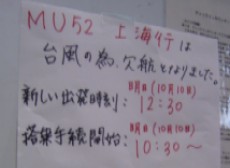 MU52 上海行は
台風の為、欠航となりました。
明日(10月10日)
新しい出発時刻: 12:30
明日(10月10日)
搭乗手続開始: 10:30～